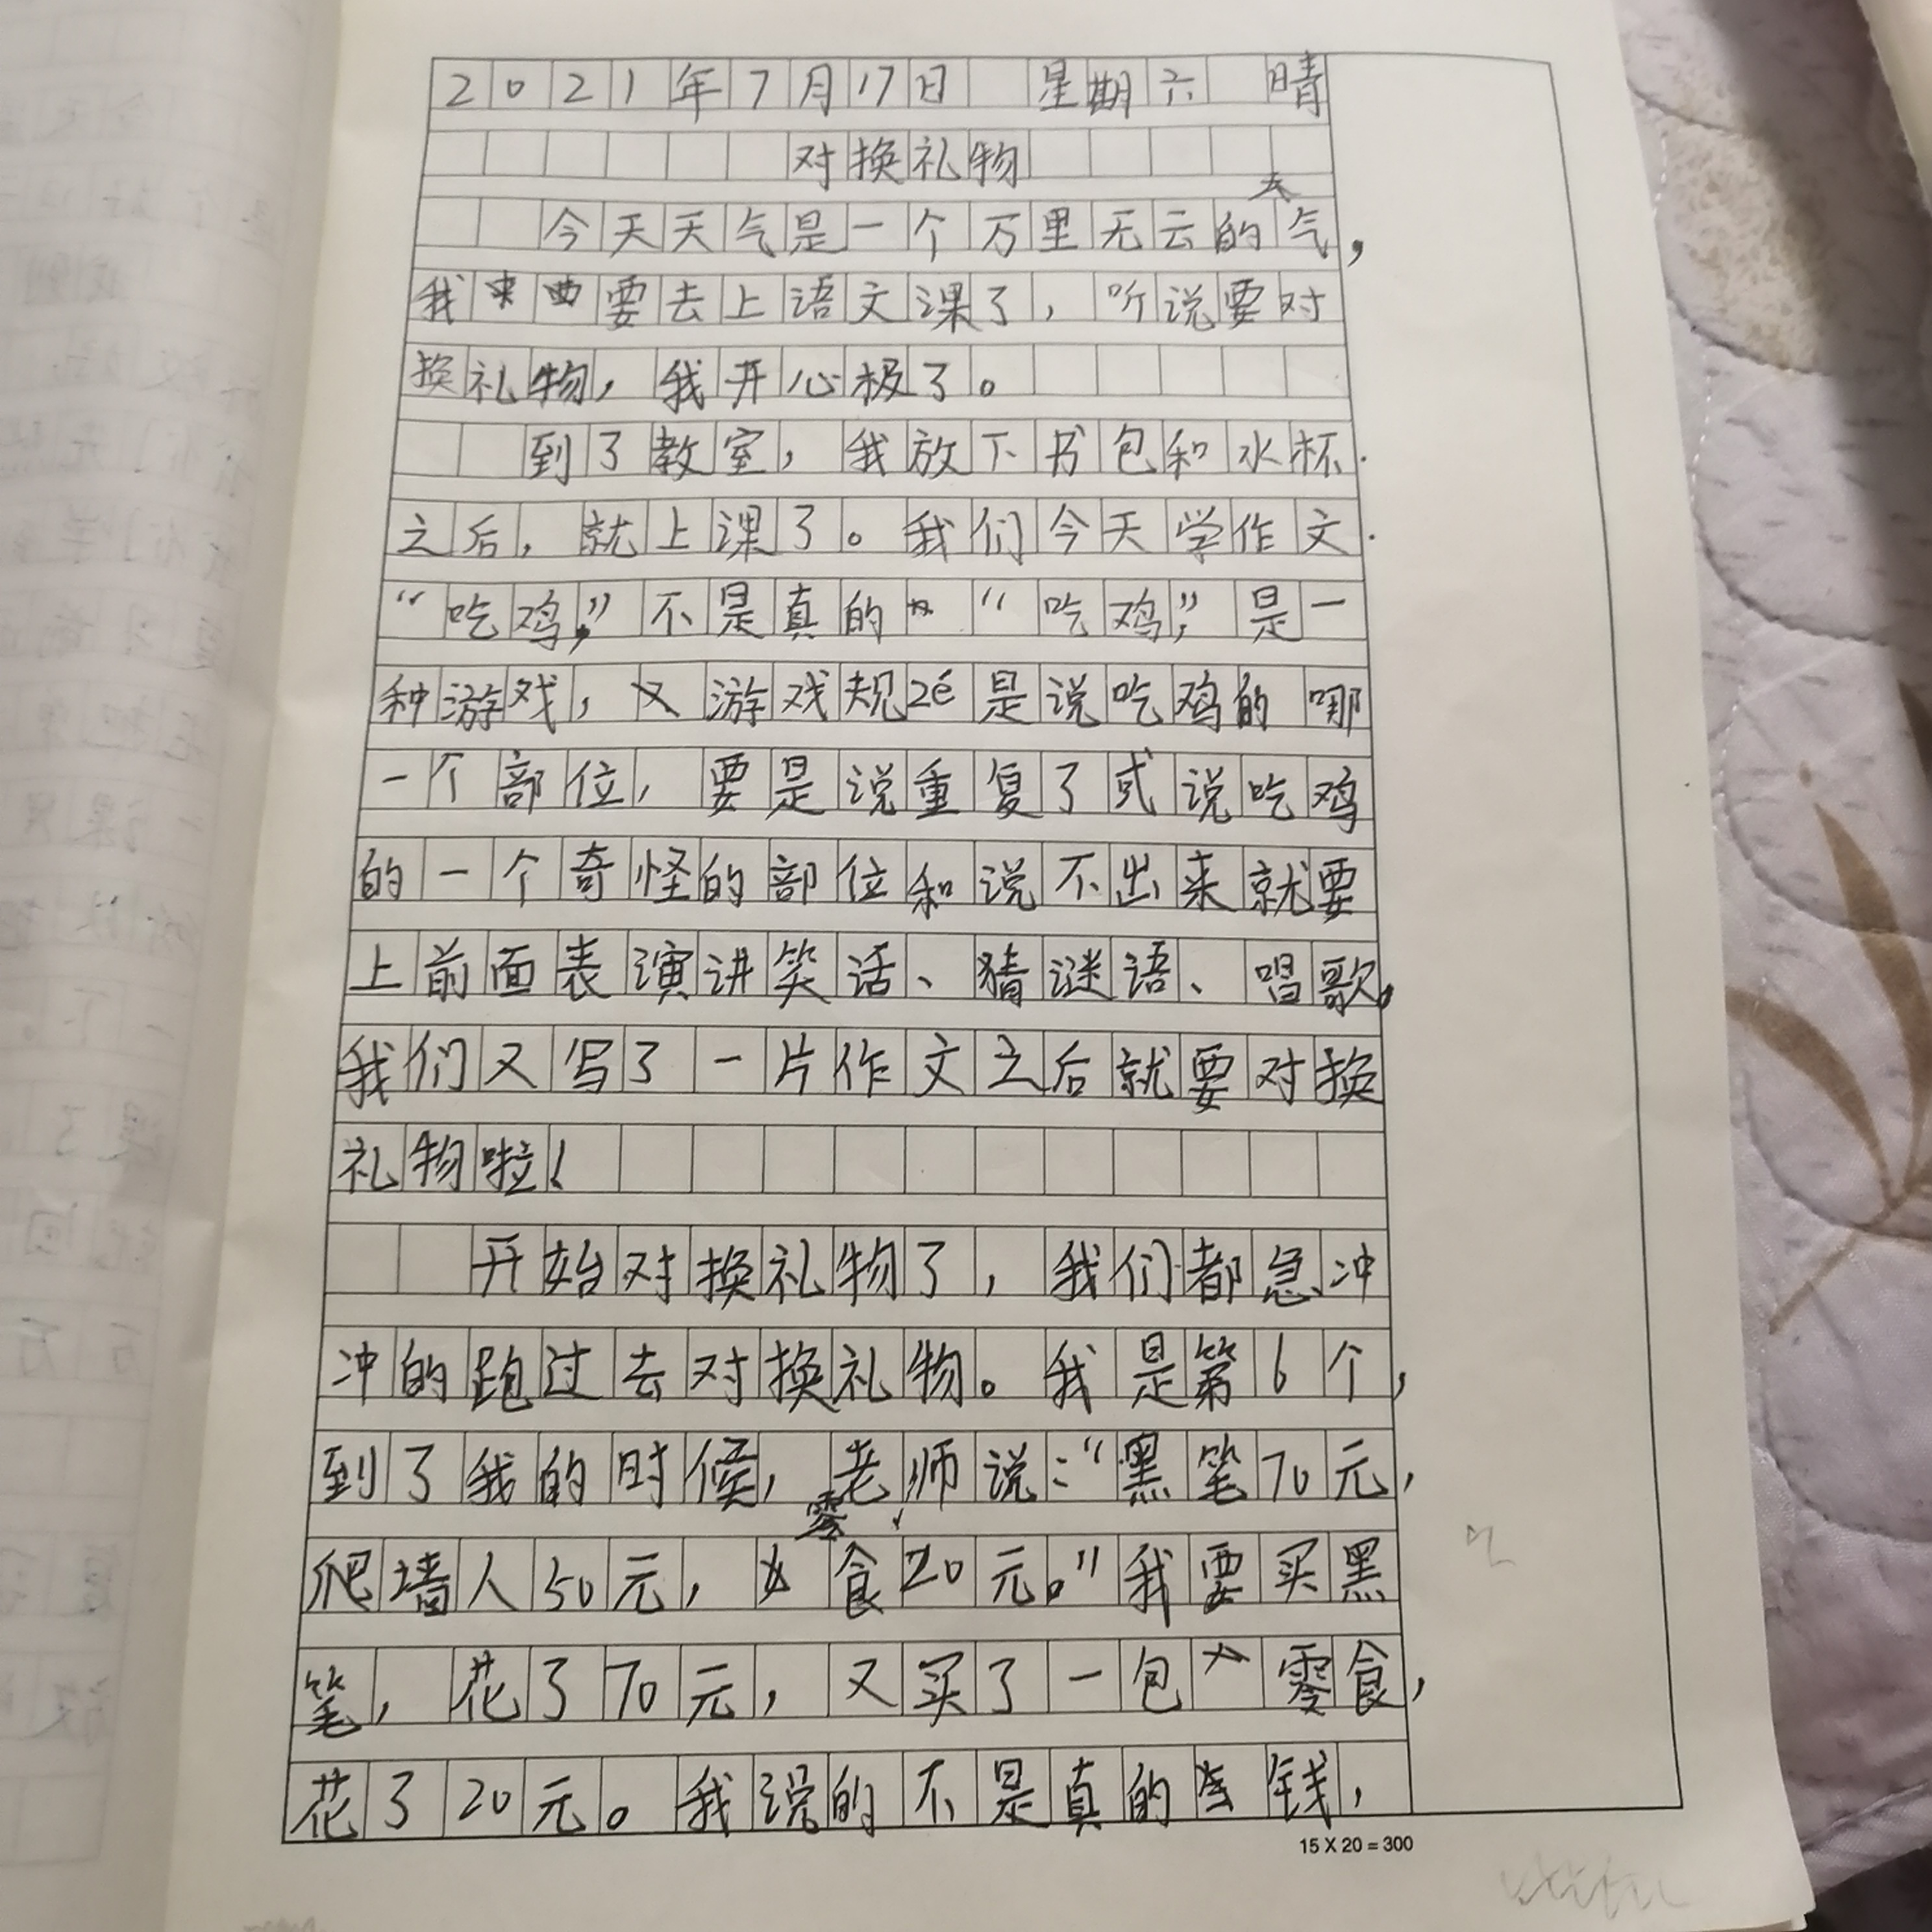 2021年7月17日 星期六 晴
对换礼物
今天天气是一个万里无云的天气，
我要去上语文课了，听说要对
换礼物，我开心极了。
到了教室，我放下书包和水杯
之后，就上课了。我们今天学作文
“吃鸡”，不是真的“吃鸡”，是一
种游戏，游戏规zé是说吃鸡的哪
一个部位，要是说重复了或说吃鸡
的一个奇怪的部位和说不出来就要
上前面表演讲笑话、猜谜语、唱歌。
我们又写了一片作文之后就要对换
礼物啦！
开始对换礼物了，我们都急冲
冲的跑过去对换礼物。我是第6个，
到了我的时候，老师说：“黑笔70元，
爬墙人50元，零食20元。”我要买黑
笔，花了70元，又买了一包零食，
花了20元。我说的不是真的钱，
15 X 20 = 300